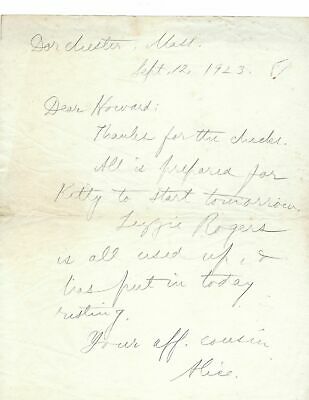 Dorchester, Mass.
Sept. 12, 1923.
Dear Howard:
Thanks for the checks.
All is prepared for
Kitty to start tomorrow.
Lizzie Rogers
is all used up, &
has put in today
resting.
Your aff. cousin
Alice.